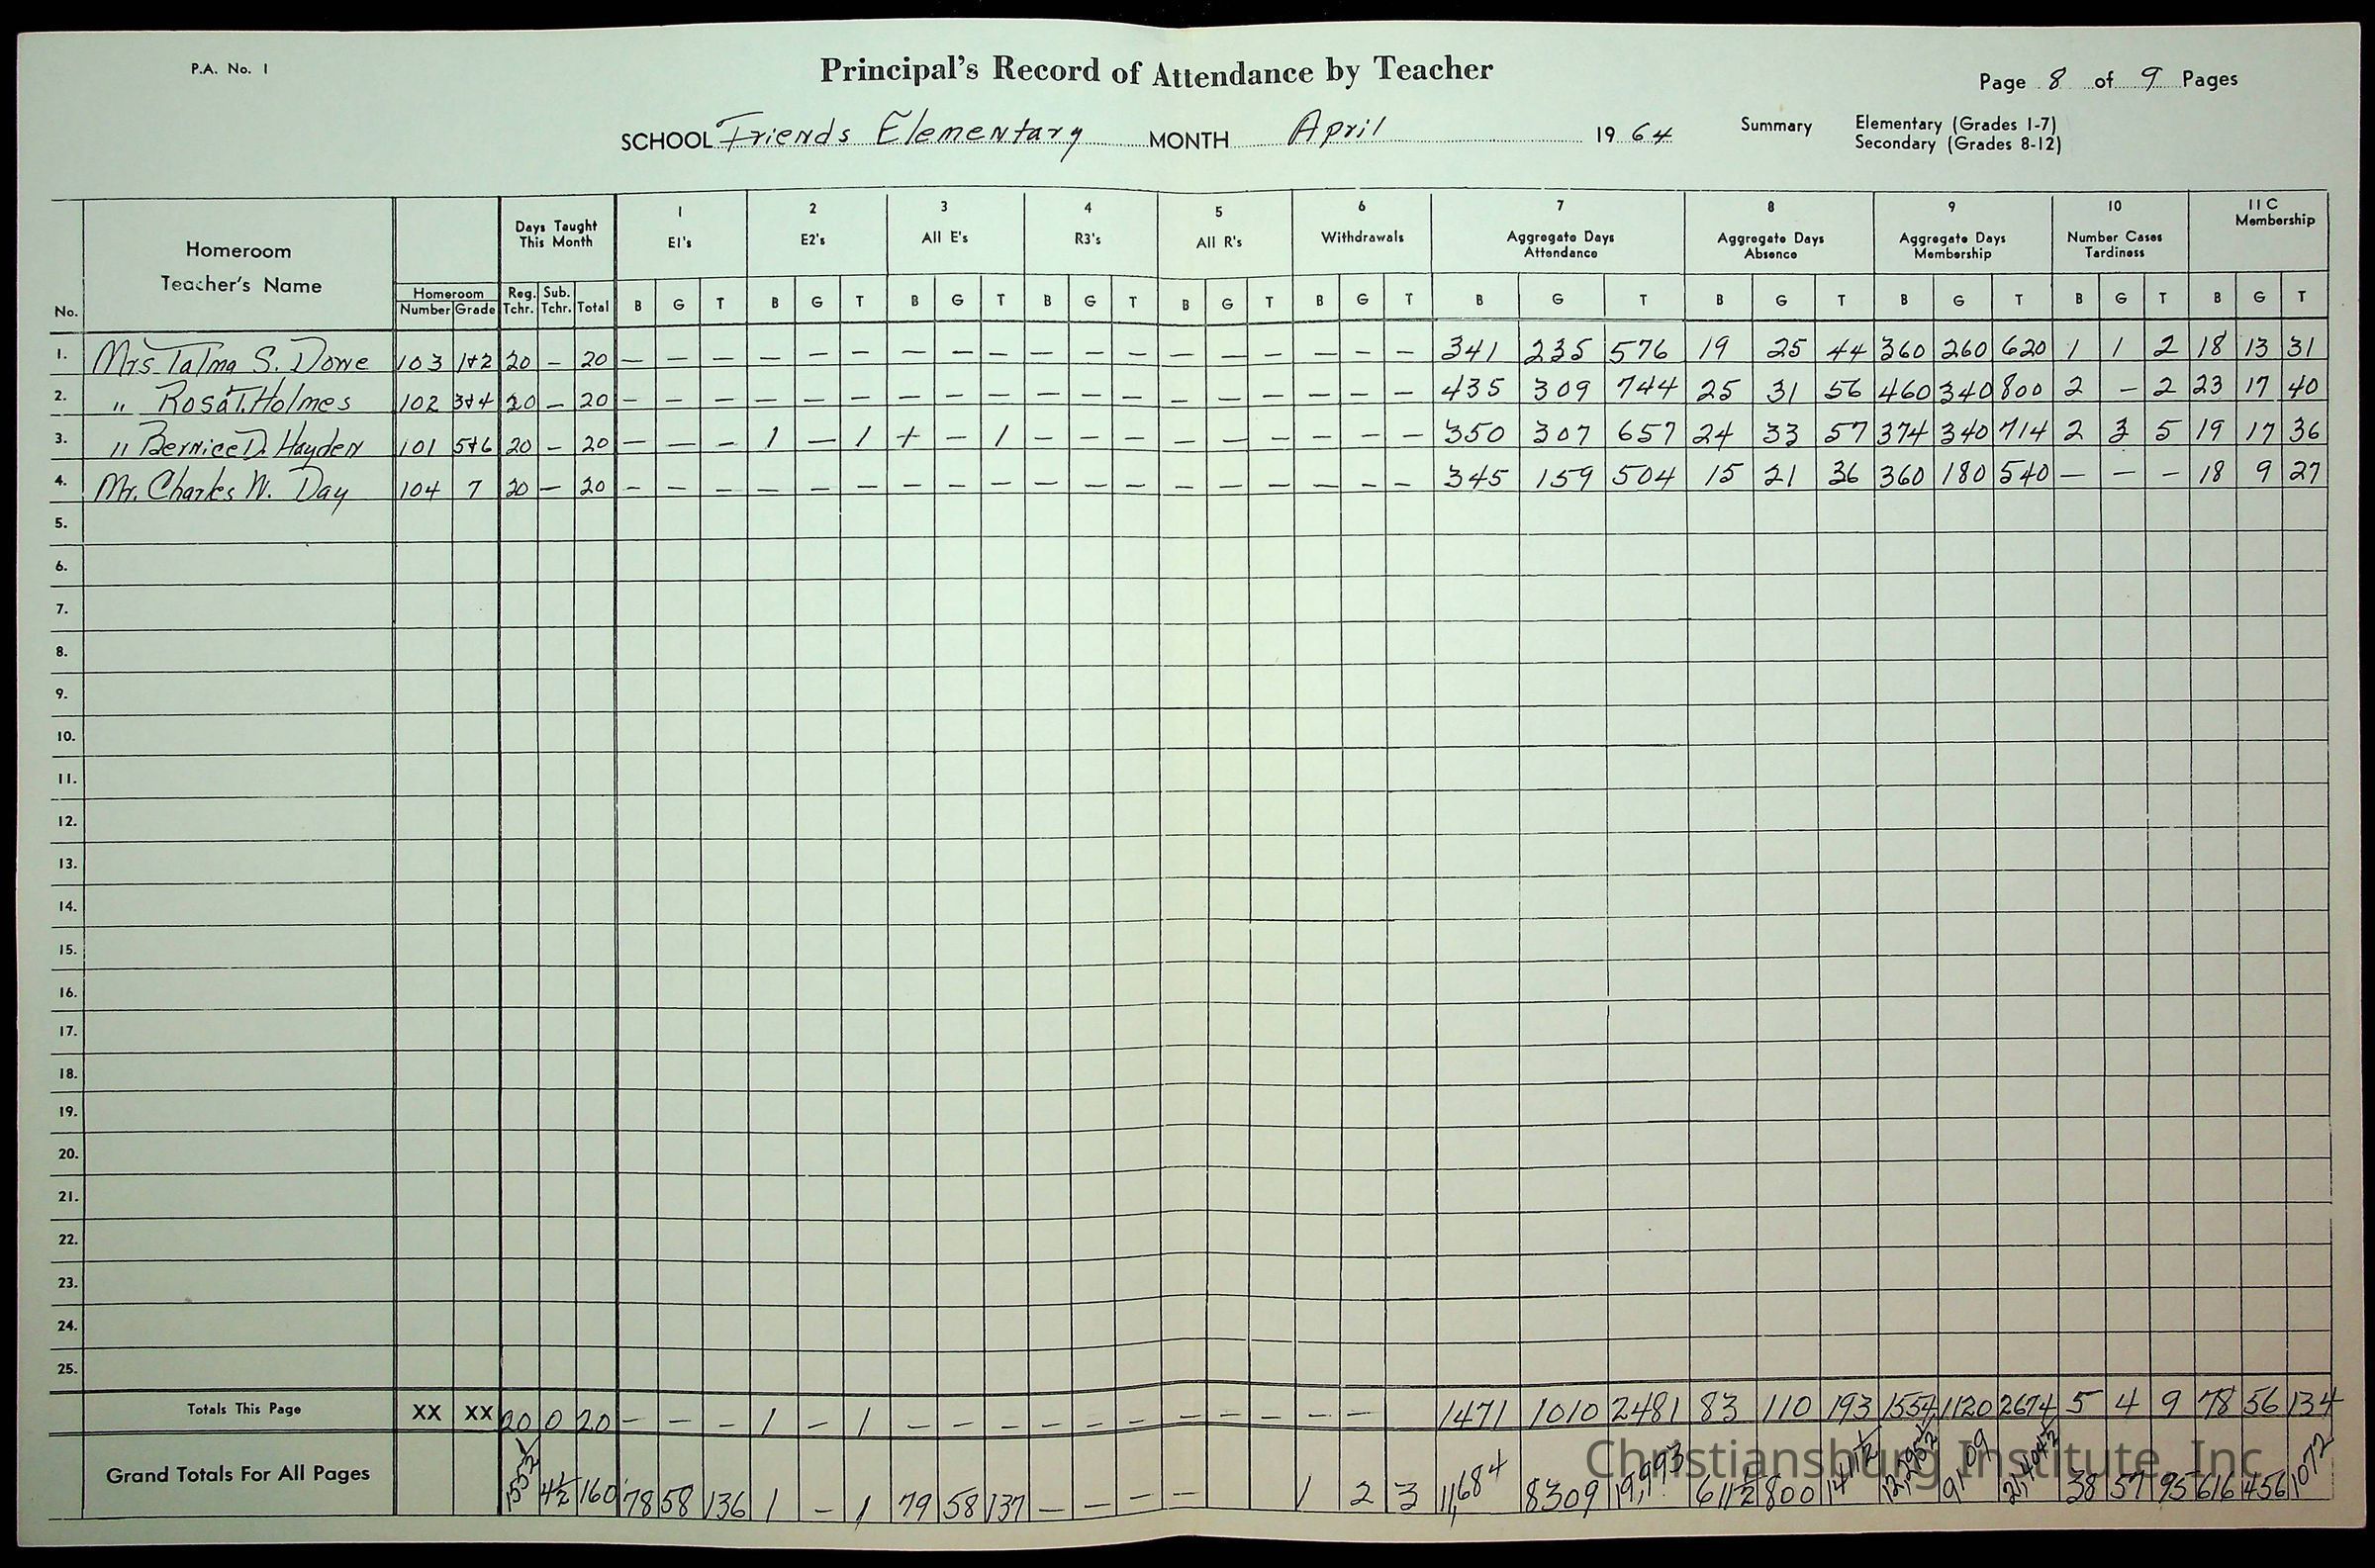 P.A. No. 1
Principal's Record of Attendance by Teacher
Page 8 of 9 Pages
SCHOOL Friends Elementary MONTH April 19 64 Summary Elementary (Grades 1-7)
Secondary (Grades 8-12)
No. Homeroom Teacher's Name Homeroom Number Grade Days Taught This Month Reg. Tchr. Sub. Tchr. Total 1 E1's 2 E2's 3 All E's 4 R3's 5 All R's 6 Withdrawals 7 Aggregate Days Attendance 8 Aggregate Days Absence 9 Aggregate Days Membership 10 Number Cases Tardiness 11 C Membership
B G T B G T B G T B G T B G T B G T B G T B G T B G T B G T B G T
1. Mrs Talma S. Dowe 103 1+2 20 – 20 – – – – – – – – – – – – – – – – – – 341 235 576 19 25 44 360 260 620 1 1 2 18 13 31
2. " Rosa T. Holmes 102 3+4 20 – 20 – – – – – – – – – – – – – – – – – – 435 309 744 25 31 56 460 340 800 2 – 2 23 17 40
3. " Bernice D. Hayden 101 5+6 20 – 20 – – – 1 – 1 + – 1 – – – – – – – – – 350 307 657 24 33 57 374 340 714 2 3 5 19 17 36
4. Mr. Charles W. Day 104 7 20 – 20 – – – – – – – – – – – – – – – – – – 345 159 504 15 21 36 360 180 540 – – – 18 9 27
5.
6.
7.
8.
9.
10.
11.
12.
13.
14.
15.
16.
17.
18.
19.
20.
21.
22.
23.
24.
25.
Totals This Page XX XX 20 0 20 – – – 1 – 1 – – – – – – – – – – – 1471 1010 2481 83 110 193 1554 1120 2674 5 4 9 78 56 134
Grand Totals For All Pages 155½ 4½ 160 78 58 136 1 – 1 79 58 137 – – – – 1 2 3 11,684 8309 19,993 611½ 800 1411½ 12,295½ 9,109 21,404½ 38 57 95 616 456 1072
Christiansburg Institute, Inc